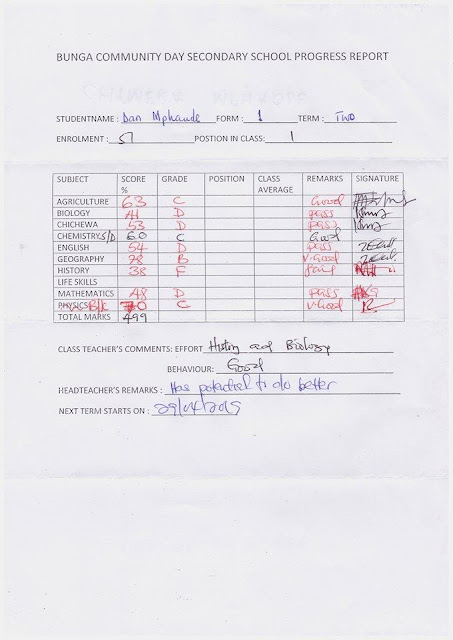 BUNGA COMMUNITY DAY SECONDARY SCHOOL PROGRESS REPORT
STUDENTNAME : Dan Mphande FORM : 1 TERM : TWO
ENROLMENT : 51 POSTION IN CLASS: 1
SUBJECT SCORE % GRADE POSITION CLASS AVERAGE REMARKS SIGNATURE
AGRICULTURE 63 C Good
BIOLOGY 41 D pass
CHICHEWA 53 D pass
CHEMISTRY S/D 60 C Good
ENGLISH 54 D pass
GEOGRAPHY 78 B V-Good
HISTORY 38 F fail
LIFE SKILLS
MATHEMATICS 48 D pass
PHYSICS B/K C V-Good
TOTAL MARKS 499
CLASS TEACHER'S COMMENTS: EFFORT History and Biology
BEHAVIOUR: Good
HEADTEACHER'S REMARKS : Has potential to do better
NEXT TERM STARTS ON : 29/04/2015